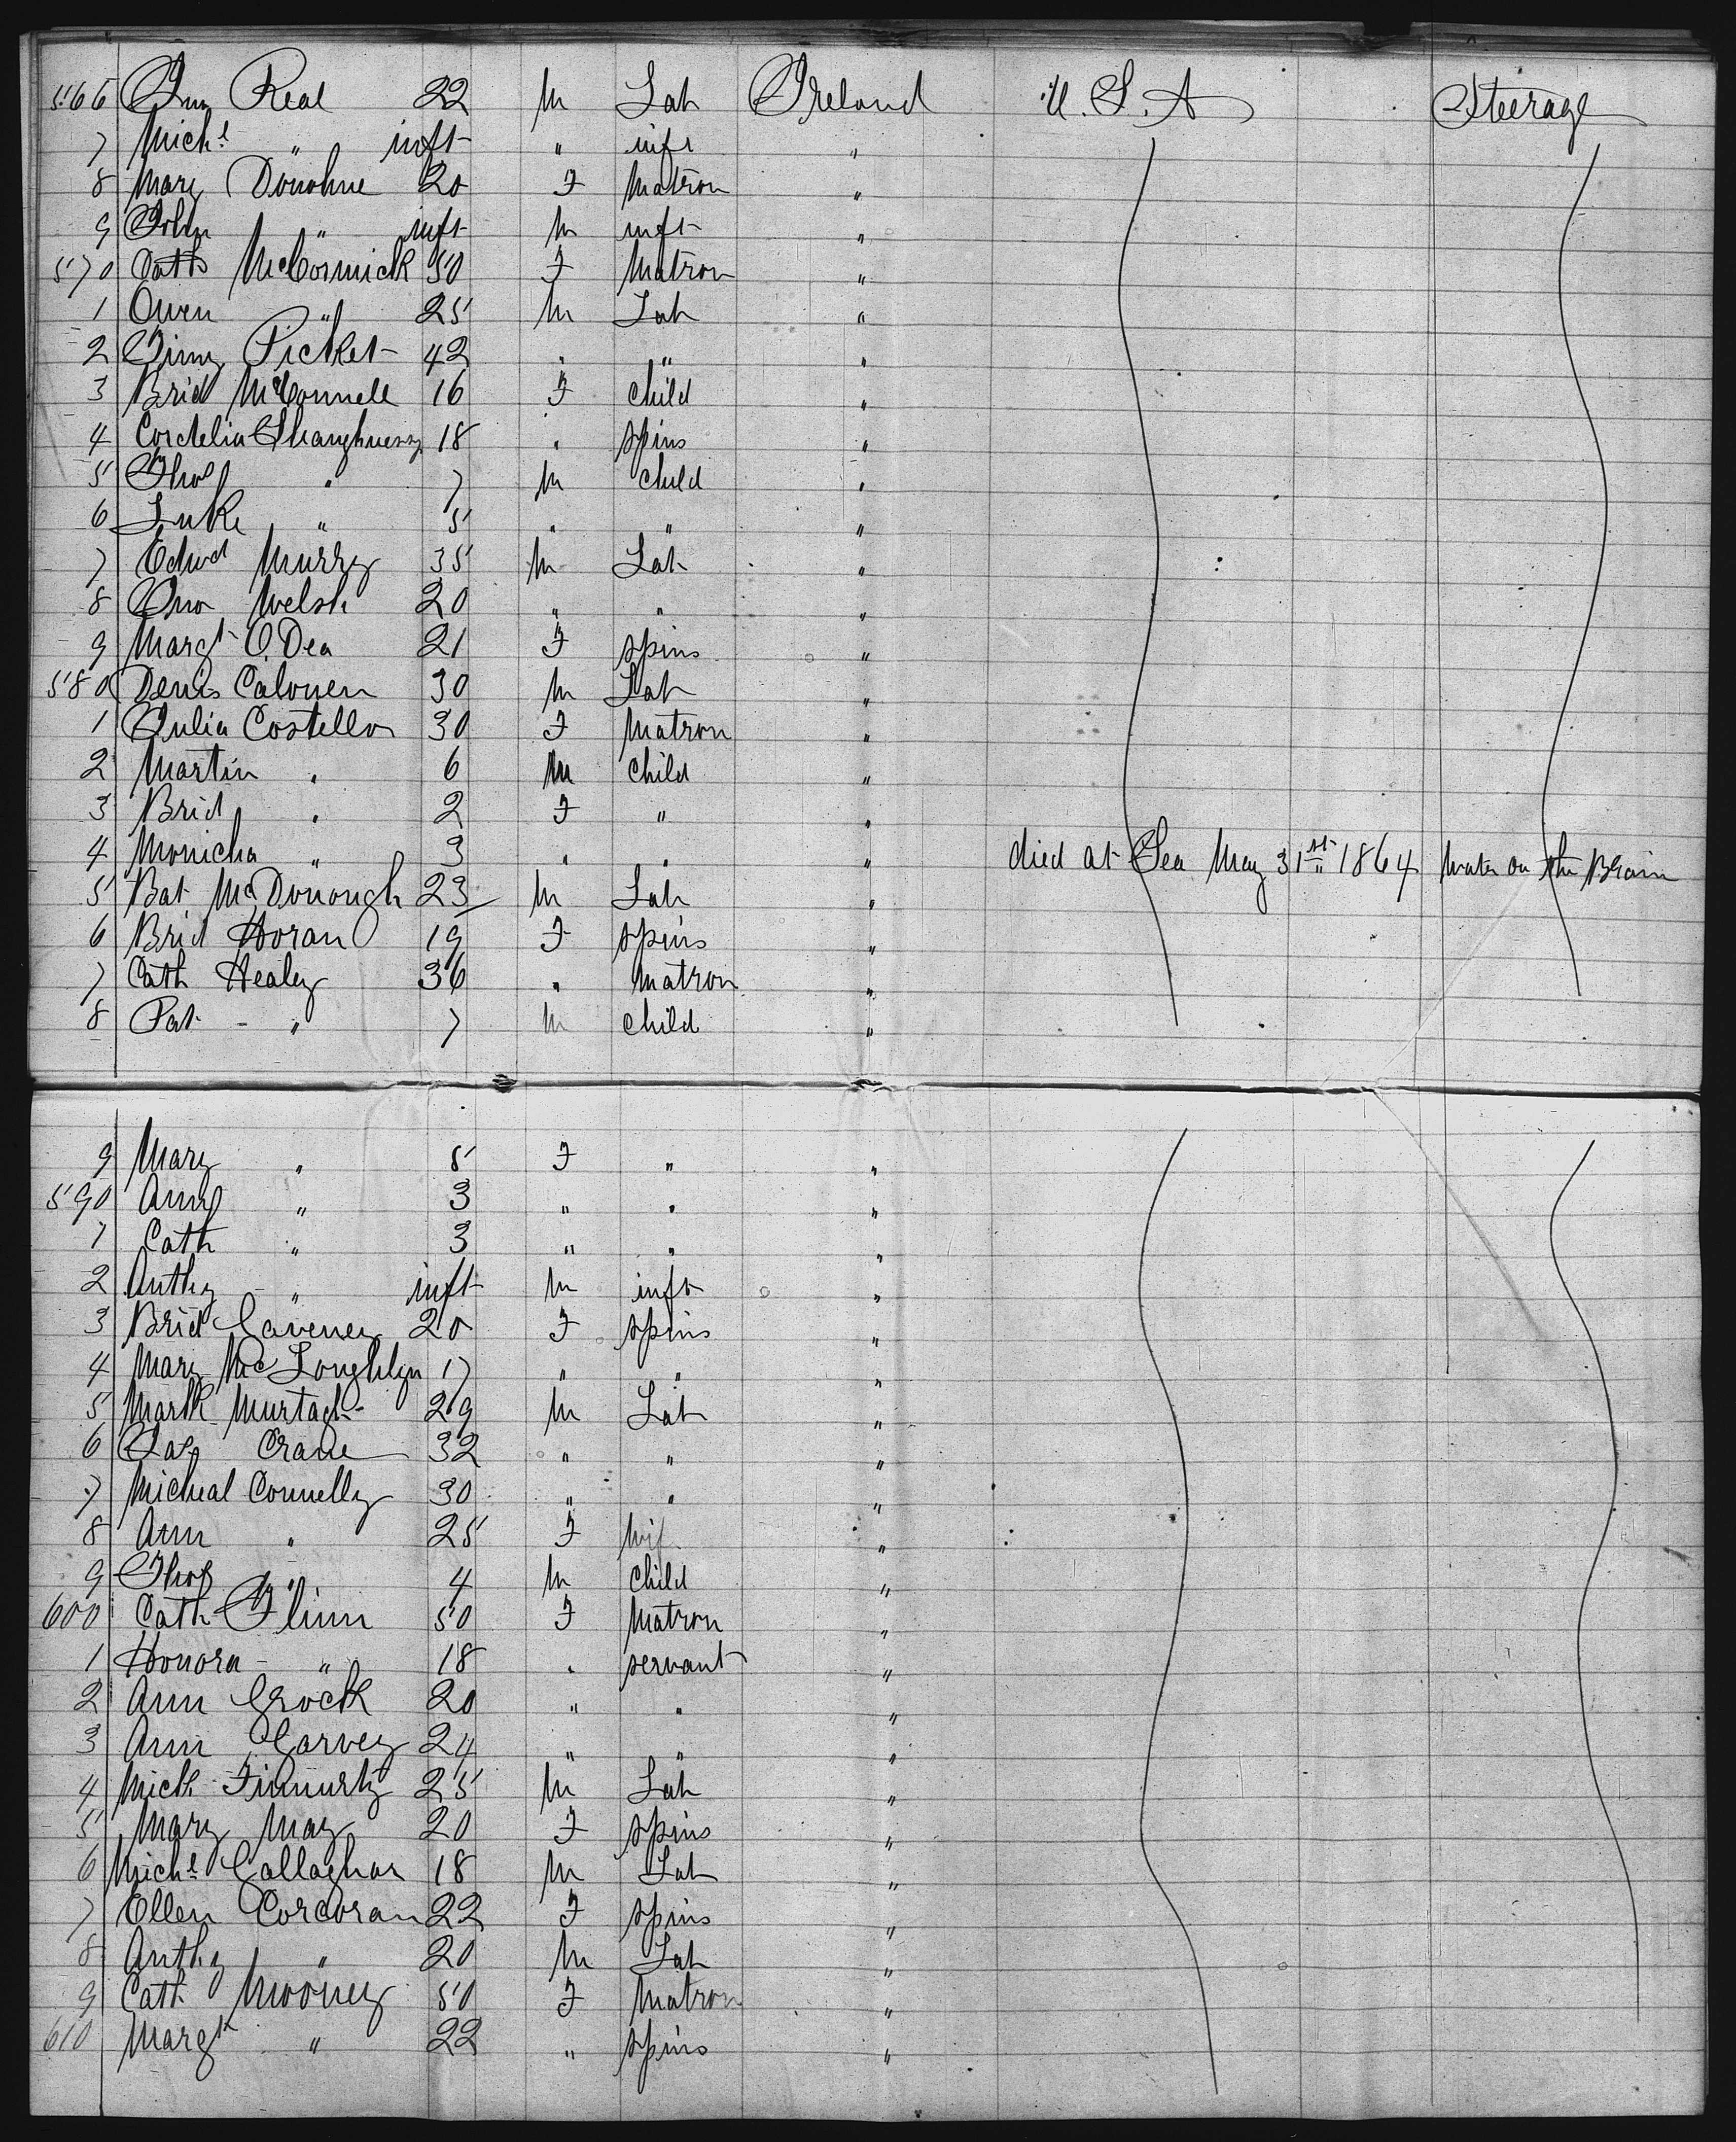 566 Real 22 M Lab Ireland U.S.A Steerage
7 Michl " inft " inft "
8 Mary Donohue 20 F Matron "
9 John " inft M inft "
570 Cath McCormick 50 F Matron "
1 Owen " 25 M Lab "
2 Picket 42 " " "
3 Brid McConnell 16 F child "
4 Cordelia Shaughnessy 18 " spins "
5 Thos " 7 M child "
6 Luke " 5 " " "
7 Edwd Murry 35 M Lab "
8 Welsh 20 " " "
9 Margt O'Dea 21 F spins "
580 Denis 30 M Lab "
1 Julia Costello 30 F Matron "
2 Martin " 6 M child "
3 Brid " 2 F " "
4 Monicha " 3 " " " died at Sea May 31st 1864 Water on the Brain
5 Bat McDonough 23 M Lab "
6 Brid Horan 19 F spins "
7 Cath Healey 36 " Matron "
8 Pat " 7 M child "
9 Mary " 5 F " "
590 Ann " 3 " " "
1 Cath " 3 " " "
2 Anthy " inft M inft "
3 Brid Caveney 20 F spins "
4 Mary McLoughlyn 17 " " "
5 Mark Murtagh 29 M Lab "
6 Crane 32 " " "
7 Micheal Connelly 30 " " "
8 Ann " 25 F wif "
9 Thos " 4 M child "
600 Cath Flinn 50 F Matron "
1 Honora " 18 " servant "
2 Ann Crock 20 " " "
3 Ann Garvey 24 " " "
4 Mich 25 M Lab "
5 Mary May 20 F spins "
6 Michl Callaghan 18 M Lab "
7 Ellen Corcoran 22 F spins "
8 Anthy " 20 M Lab "
9 Cath Mooney 50 F Matron "
610 Margt " 22 " spins "